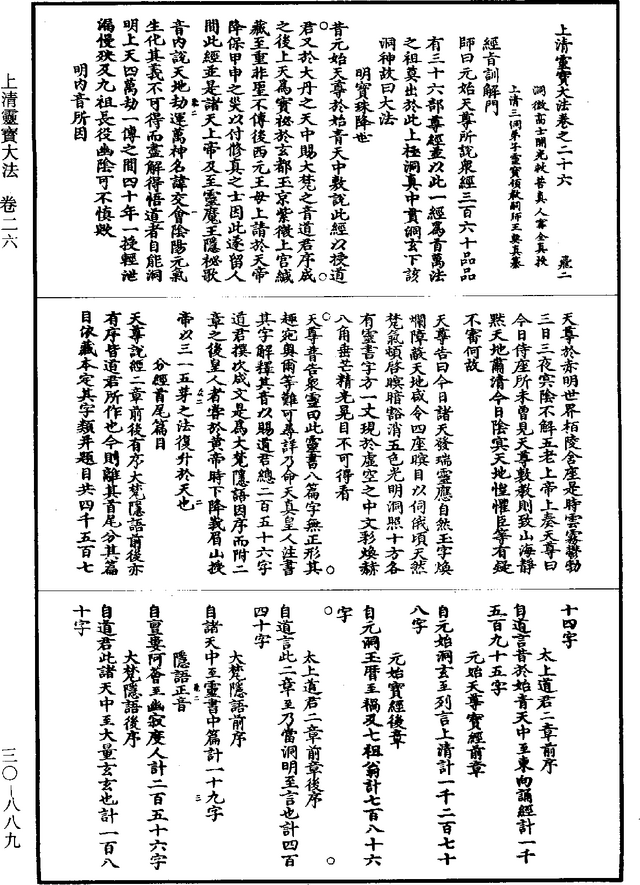 上清靈寶大法卷之二十六　　　　　　　　鳳二
洞微高士開光救苦真人甯全真授
上清三洞弟子靈寶領教嗣師王契真纂
經音訓解門
師曰元始天尊所說衆經三百六十品品
有三十六部尊經並以此一經爲首萬法
之祖莫出於此上極洞真中貫洞玄下該
洞神故曰大法
明寶珠降世
昔元始天尊於始青天中敷說此經以授道
君又於大丹之天中賜大梵之音道君序成
之後上天爲寶祕於玄都玉京紫微上宮緘
藏至重非聖不傳後西元王母上請於天帝
降保甲申之災以付修真之士因此遂留人
間此經並是諸天上帝及至靈魔王隱祕歌
音內說天地劫運萬神名諱交會陰陽元氣
生化其義不可得而盡解得悟道者自能洞
明上天四萬劫一傳之間四十年一授輕泄
漏慢殃及九祖長役幽陰可不慎歟
明內音所因
天尊於赤明世界栢陵舍座是時雲霧鬱勃
三日三夜雲陰不解五老上帝上奏天尊曰
今日侍座所未曾見天尊數教則致山海靜
默天地肅清今日陰冥天地惶懼臣等有疑
不審何故
天尊告曰今日諸天發瑞靈應自然玉字煥
爛障蔽天地咸令四座瞑目以伺俄頃天然
梵氣頓啓瞑暗豁消五色光明洞照十方各
有靈書字方一丈現於虛空之中文彩煥赫
八角垂芒精光晃目不可得看
天尊普告衆靈曰此靈書八篇字無正形其
趣宛奧爾等難可尋詳乃命天真皇人注書
其字解釋其音以賜道君總二百五十六字
道君撰次成文是爲大梵隱語因序而附二
章之後皇人者壽於黃帝時下降峩眉山授
帝以三一五芽之法復升於天也
分經首尾篇目
天尊說經二章前後有序大梵隱語前後亦
有序皆道君所作也今則離其首尾分其篇
目依藏本定其字類并題目共四千五百七
十四字
太上道君二章前序
自道言昔於始青天中至東向誦經計一千
五百九十五字
元始天尊寶經前章
自元始洞玄至列言上清計一千二百七十
八字
元始寶經後章
自元洞玉曆至禍及七祖翁計七百八十六
字
太上道君二章前章後序
自道言此二章至乃當洞明至言也計四百
四十字
大梵隱語前序
自諸天中至靈書中篇計一十九字
隱語正音
自亶婁阿薈至幽寂度人計二百五十六字
大梵隱語後序
自道君此諸天中至大量玄玄也計一百八
十字
上清靈寶大法　卷二六
三〇-八八九